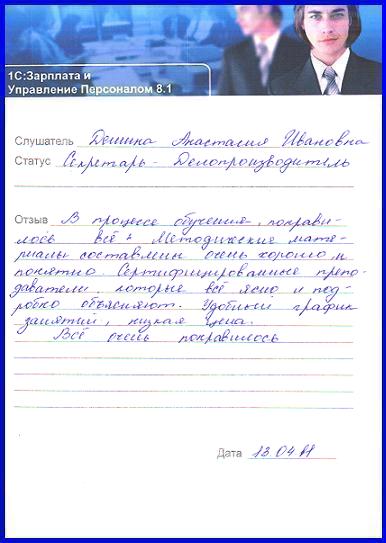 1С:Зарплата и
Управление Персоналом 8.1
Слушатель Дешина Анастасия Ивановна
Статус Секретарь - Делопроизводитель
Отзыв В процессе обучения, понрави-
лось всё. Методические мате-
риалы составлены очень хорошо и
понятно. Сертифицированные препо-
даватели, которые всё ясно и под-
робно объясняют. Удобный график
занятий, низкая цена.
Всё очень понравилось
Дата 13.04.11